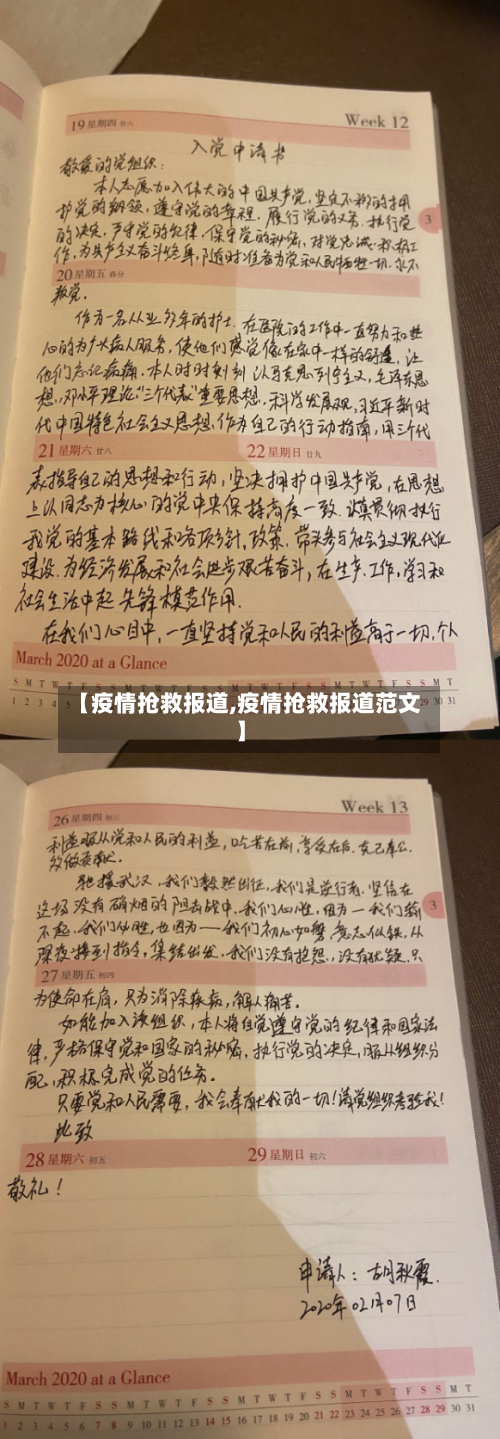 19 星期四 廿六
Week 12
入党申请书
敬爱的党组织：
本人志愿加入伟大的中国共产党，坚定不移的拥
护党的纲领，遵守党的章程，履行党的义务，执行党
3
的决定，严守党的纪律，保守党的秘密，对党忠诚，积极工
作，为共产主义奋斗终身，随时准备为党和人民牺牲一切，永不
20 星期五 春分
叛党。
作为一名从业多年的护士，在医院的工作中一直努力和热
心的为广大病人服务，使他们感觉像在家中一样的舒适，让
他们忘记病痛。本人时时刻刻以马克思列宁主义，毛泽东思
想，邓小平理论，“三个代表”重要思想，科学发展观，习近平新时
代中国特色社会主义思想，作为自己的行动指南，用三个代
21 星期六 廿八
22 星期日 廿九
表指导自己的思想和行动，坚决拥护中国共产党，在思想
上以同志为核心的党中央保持高度一致。认真贯彻执行
我党的基本路线和各项方针，政策，带头参与社会主义现代化
建设，为经济发展和社会进步艰苦奋斗，在生产，工作，学习和
社会生活中起先锋模范作用。
在我们心目中，一直坚持党和人民的利益高于一切，个人
March 2020 at a Glance
S M T W T F S S M T W T F S S M T W T F S S M T W T F S S M T
【疫情抢救报道,疫情抢救报道范文
】
26 星期四 初三
Week 13
利益服从党和人民的利益，吃苦在前，享受在后，克己奉公，
多做贡献。
驰援武汉，我们毅然出征，我们是逆行者，坚信在
这场没有硝烟的阻击战中，我们必胜，因为一我们输
3
不起。我们必胜，也因为——我们初心如磐，意志似铁。从
深夜接到指令，集结出发，我们没有抱怨，没有犹疑，只
27 星期五 初四
为使命在肩，只为消除疾病，解人痛苦。
如能加入该组织，本人将自觉遵守党的纪律和国家法
律，严格保守党和国家的秘密，执行党的决定，服从组织分
配，积极完成党的任务。
只要党和人民需要，我会奉献我的一切！请党组织考验我！
此致
28 星期六 初五
29 星期日 初六
敬礼！
申请人：胡秋霞
2020年02月07日
March 2020 at a Glance
S M T W T F S S M T W T F S S M T W T F S S M T W T F S S M T
1 2 3 4 5 6 7 8 9 10 11 12 13 14 15 16 17 18 19 20 21 22 23 24 25 26 27 28 29 30 31